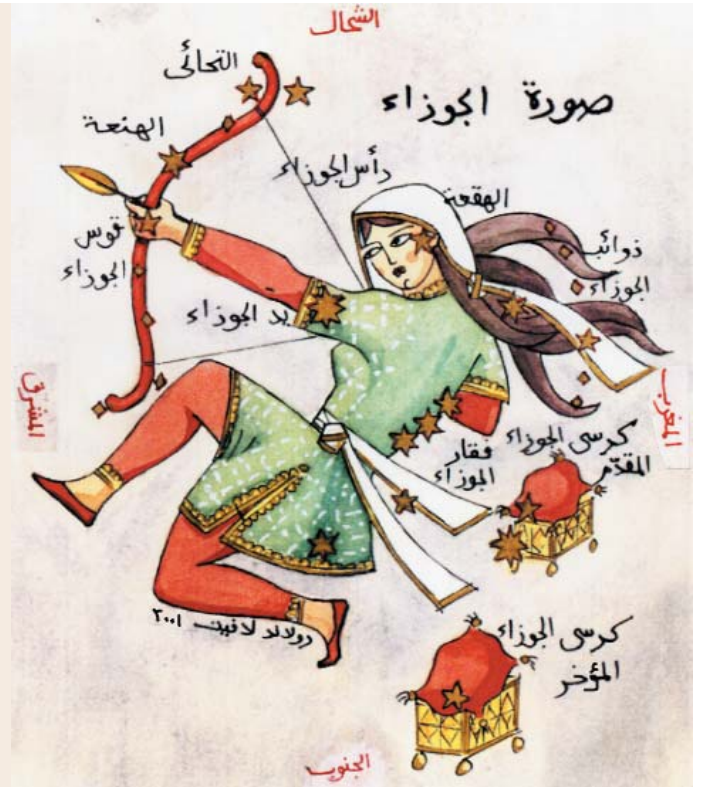 الشمال
صورة الجوزاء
التحائى
الهنعة
رأس الجوزاء
الهقعة
ذوائب
الجوزاء
قوس
الجوزاء
يد الجوزاء
المشرق
المغرب
فقار
الجوزاء
كرسى الجوزاء
المقدّم
كرسى الجوزاء
المؤخر
لافيت ٢٠٠١
الجنوب